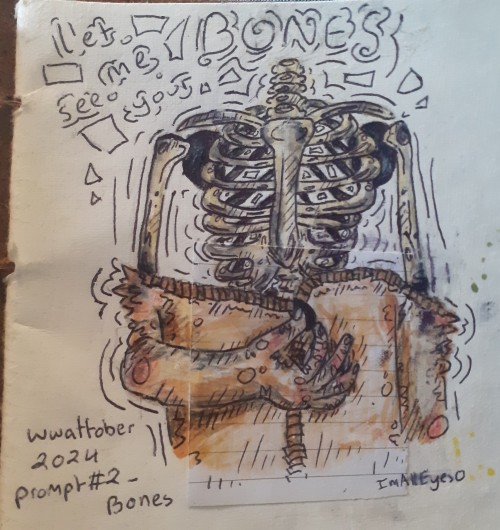 Let BONES
me
see your
wwattober
2024
prompt #2 -
Bones
ImAllEyesO